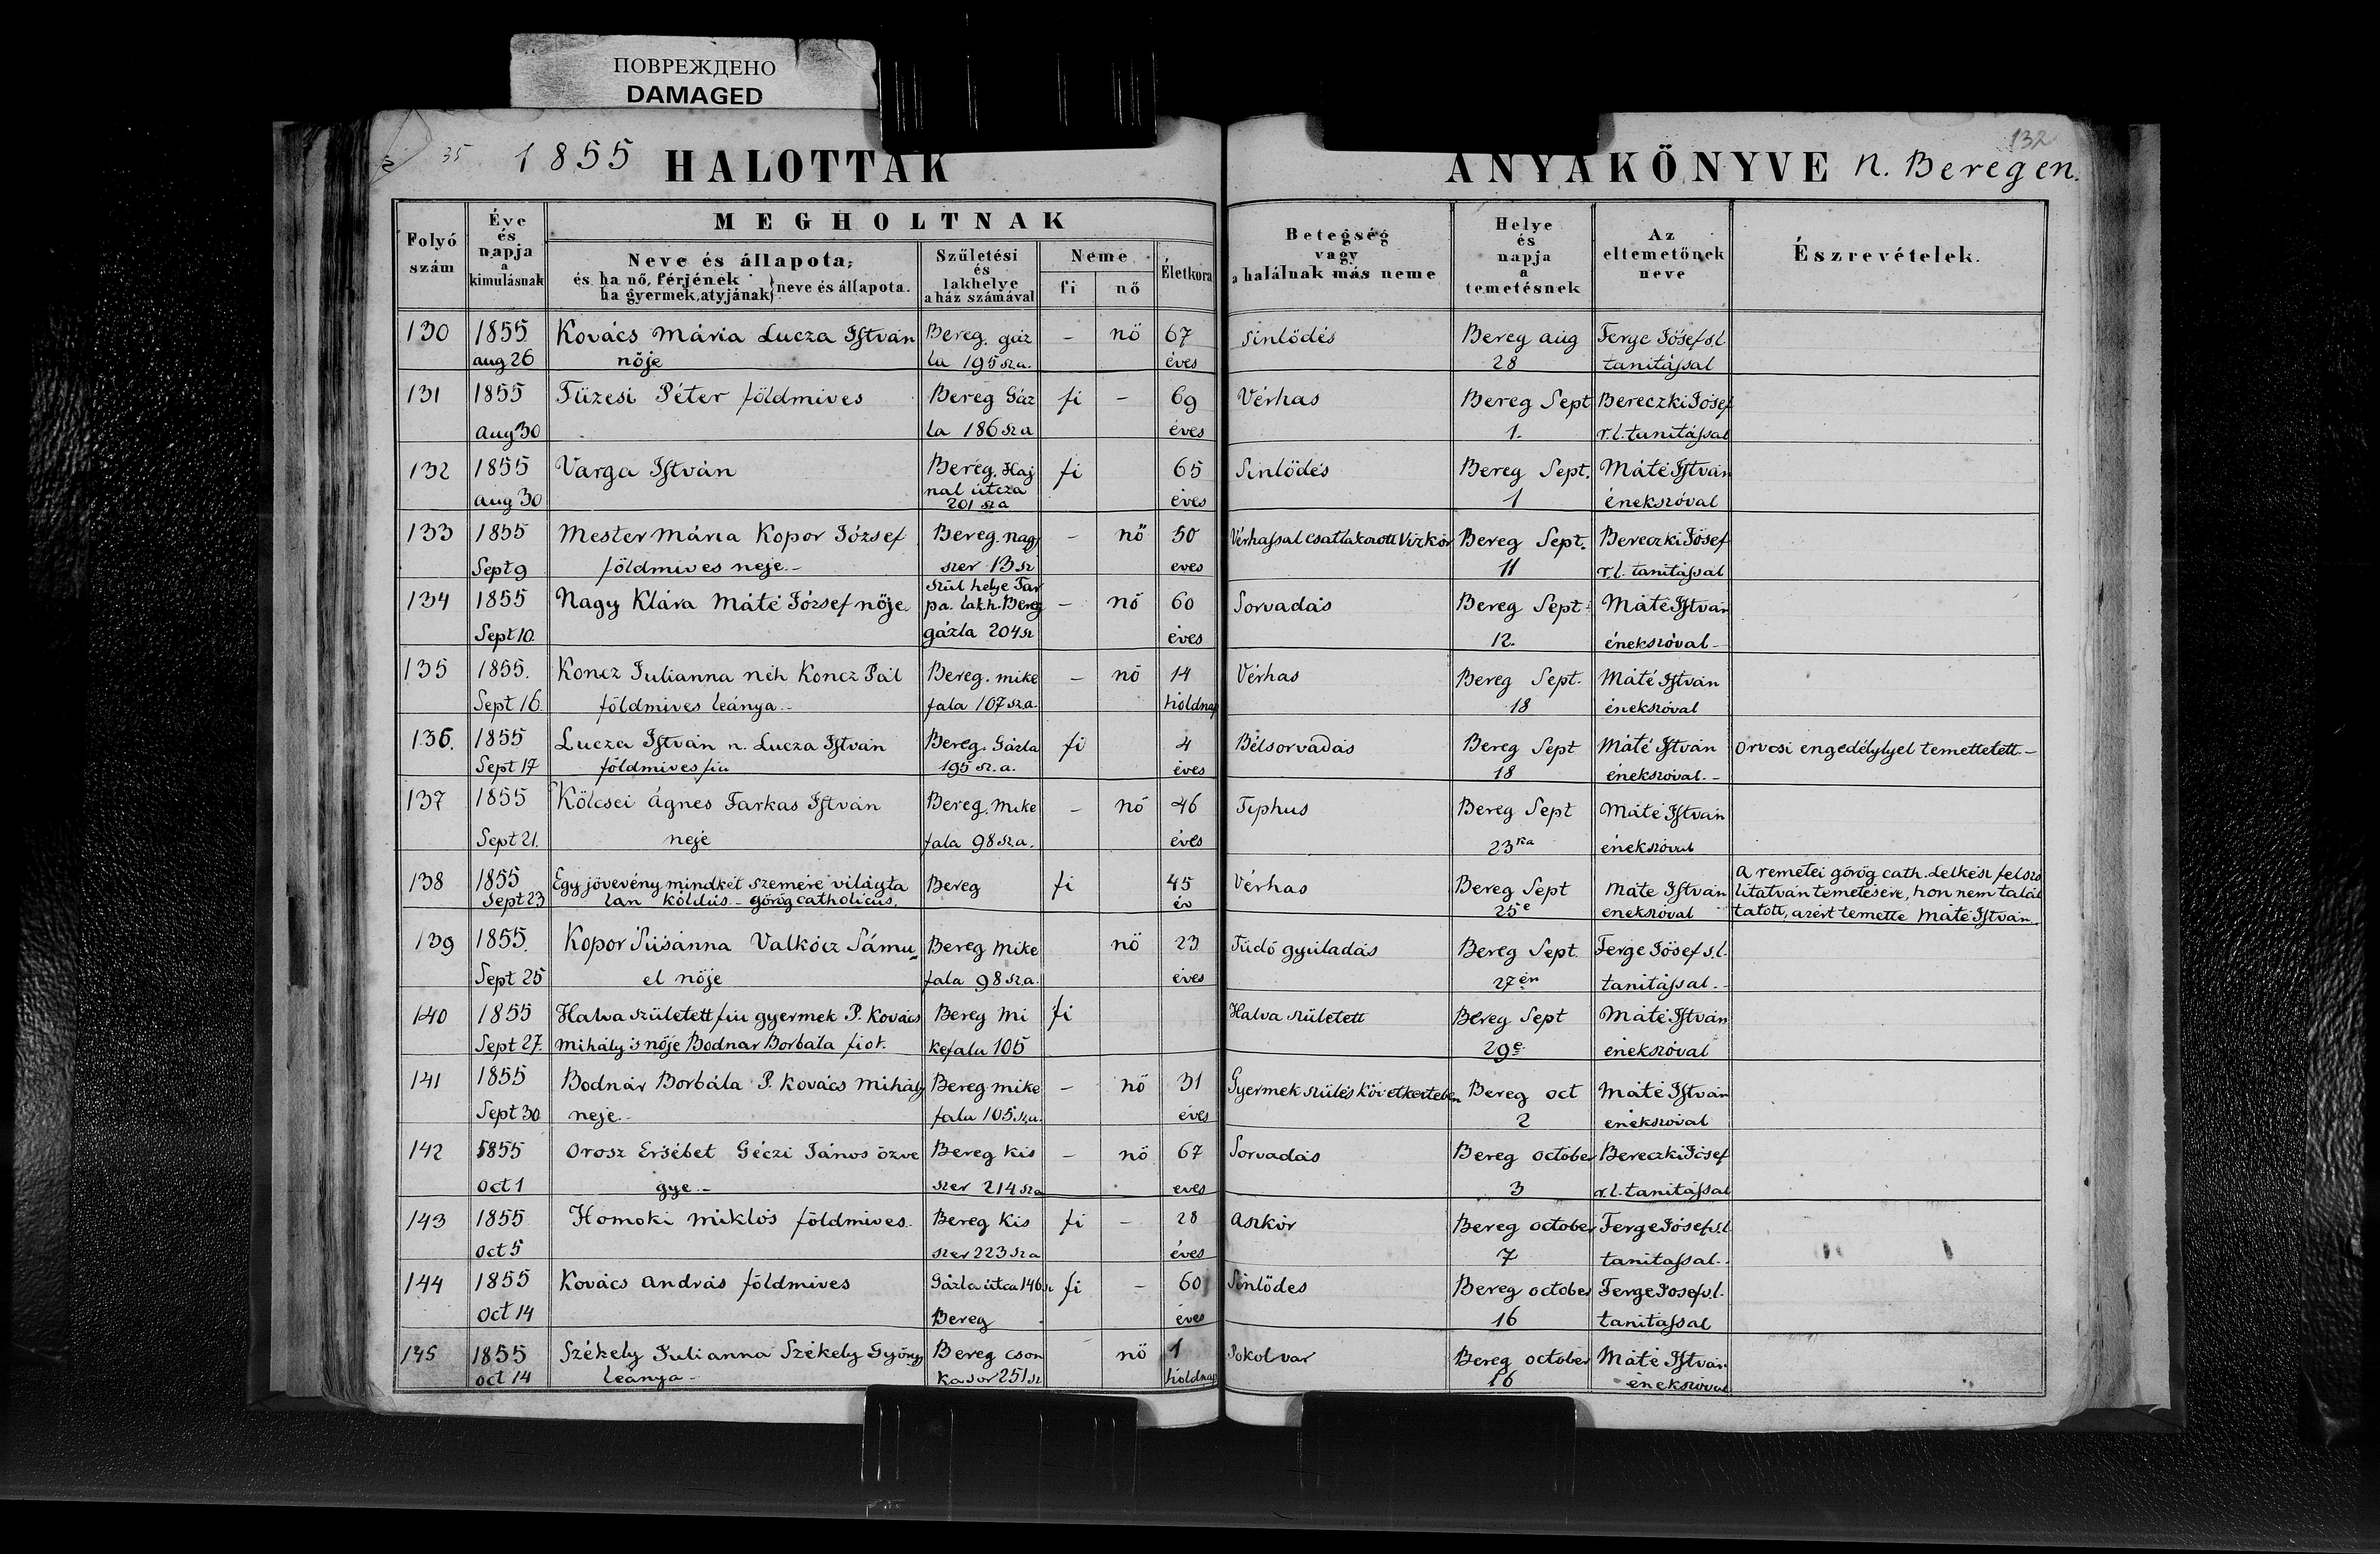 ПОВРЕЖДЕНО
DAMAGED
35 1855 HALOTTAK
132
ANYAKÖNYVE N. Beregen.
Folyó szám
Éve és napja a kimulásnak
MEGHOLTNAK
Neve és állapota,
és ha nő, férjének ha gyermek, atyjának } neve és állapota.
Születési és lakhelye a ház számával
Neme
fi nő
Életkora
Betegség vagy a halálnak más neme
Helye és napja a temetésnek
Az eltemetőnek neve
Észrevételek.
130 1855 Kovács Mária Lucza István Bereg. gáz – nő 67 Sinlődés Bereg aug Ferge Jósef s.l.
aug 26 nője la 195 sz a. éves 28 tanitással
131 1855 Füzesi Péter földmives Bereg Gáz fi – 69 Vérhas Bereg Sept Bereczki Jósef
aug 30 la 186 sz a éves 1. r.l. tanitással
132 1855 Varga István Bereg. Haj fi 65 Sinlődés Bereg Sept. Máté István
aug 30 nal útcza 201 sz a éves 1 énekszóval
133 1855 Mester Mária Kopor József Bereg. nagy – nő 50 Vérhassal csatlakozott Vizkór Bereg Sept. Bereczki Jósef
Sept 9 földmives neje.– szer 13 sz eves 11 r.l. tanitással
134 1855 Nagy Klára Máté József nője Szül helye Tar pa. lak.h. Bereg – nő 60 Sorvadás Bereg Sept. Máté István
Sept 10. gázla 204 sz éves 12. énekszóval –
135 1855. Koncz Julianna néh Koncz Pál Bereg. mike – nő 14 Vérhas Bereg Sept. Máté István
Sept 16. földmives leánya.– fala 107 sz a. hóldnap 18 énekszóval
136. 1855 Lucza István n. Lucza István Bereg. Gázla fi 4 Bélsorvadás Bereg Sept Máté István orvosi engedélylyel temettetett.–
Sept 17 földmives fia 195 sz. a. éves 18 énekszóval.–
137 1855 Kölcsei Ágnes Farkas István Bereg. Mike – nő 46 Tiphus Bereg Sept Máté István
Sept 21. neje fala 98 sz.a. éves 23 ka énekszóval
138 1855 Egy jövevény mindkét szemére világta Bereg fi 45 Vérhas Bereg Sept Máté István
Sept 23 lan köldús – görög catholicus. év 25 e enekszóval
A remetei görög cath. Lelkész felszo
litatván temetésére, hon nem talál
tatott, azért temette Máté István.
139 1855. Kopor Súsánna Valkócz Sámu= Bereg Mike nő 23 Tüdő gyuladás Bereg Sept. Ferge Jósef s.l.
Sept 25 el nője fala 98 sz.a. éves 27 én tanitással.–
140 1855 Halva született fiu gyermek P. Kovács Bereg Mi fi Halva született Bereg Sept Máté István
Sept 27. Mihály 's nője Bodnar Borbála fiok. kefalu 105 29 e énekszóval
141 1855 Bodnár Borbála P. Kovács Mihály Bereg mike – nő 31 Gyermek szülés következtében Bereg oct Máté István
Sept 30 neje.– falu 105 sz.a. éves 2 énekszóval
142 1855 Orosz Ersébet Géczi János özve Bereg Kis – nő 67 Sorvadás Bereg october Bereczki Jósef
Oct 1 gye.– szer 214 sz a eves 3 r.l. tanitással
143 1855 Homoki Miklós földmives. Bereg Kis fi – 28 Aszkór Bereg october Ferge Jósef s.l.
Oct 5 szer 223 sz a éves 7 tanitassal.–
144 1855 Kovács András földmives Gázla útca 146 sz fi – 60 Sinlődes Bereg october Ferge Josef s.l.
Oct 14 Bereg éves 16 tanitassal
145 1855 Székely Julianna Székely György Bereg cson nő 1 Sokolvar Bereg october Máté István
oct 14 leánya – ka sor 251 sz hóldnap 16 énekszóval